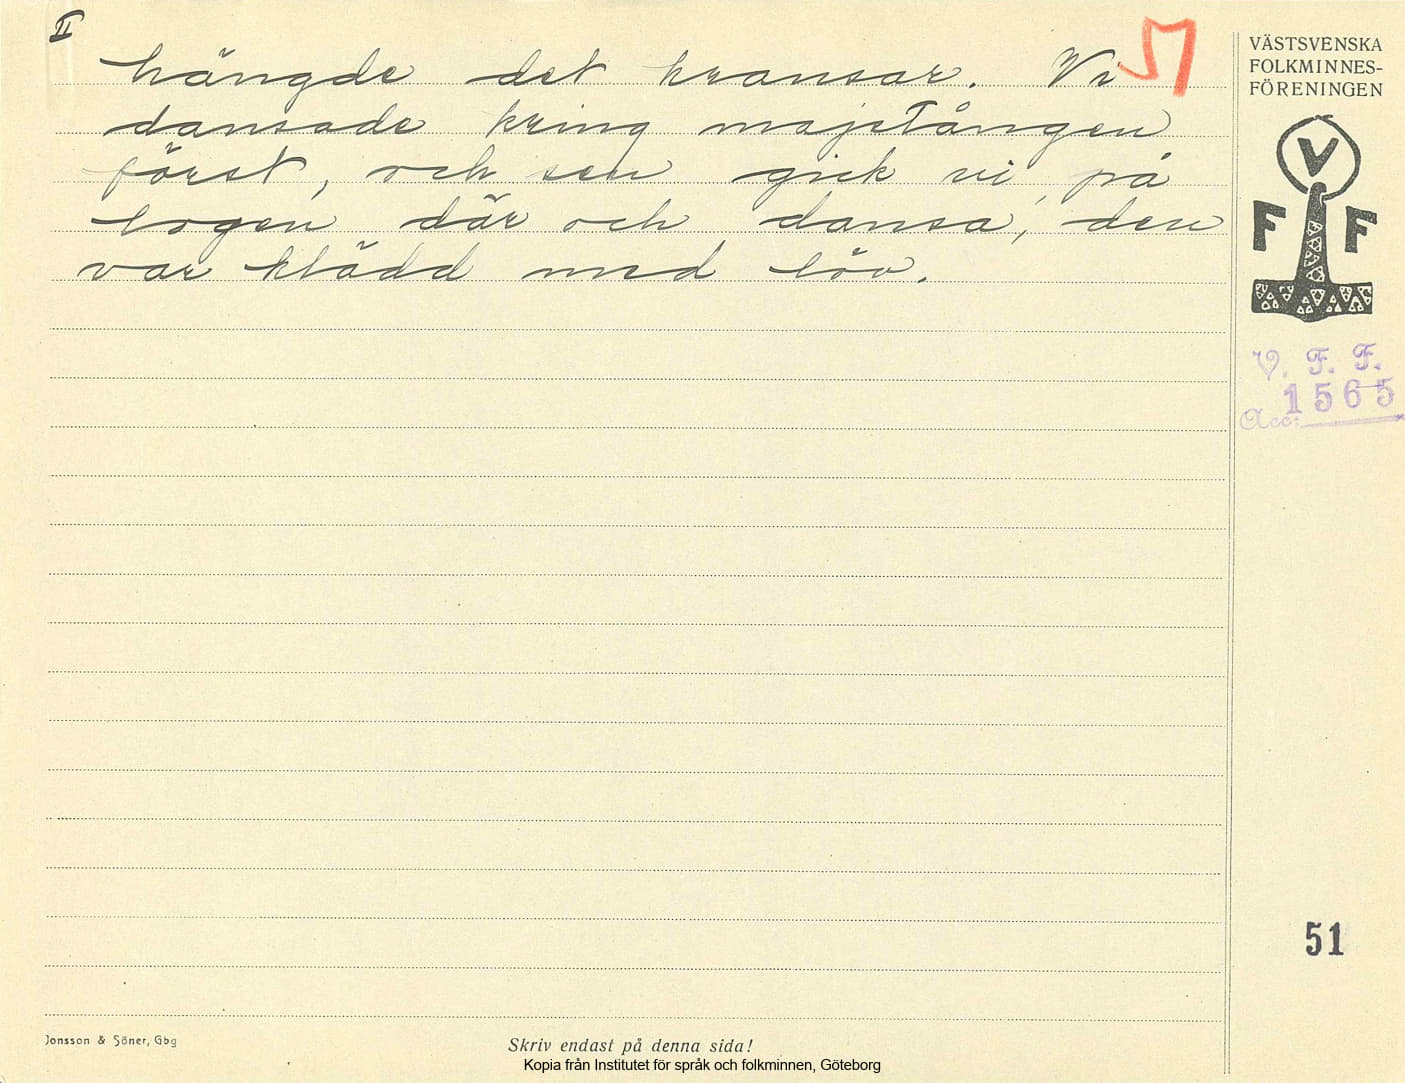 II
hängde det kransar. Vi
dansade kring majstången
först, och sen gick vi på
logen där och dansa, den
var klädd med löv.
VÄSTSVENSKA
FOLKMINNES-
FÖRENINGEN
V
F F
V. F. F.
Acc: 1565
51
Jonsson & Söner, Gbg
Skriv endast på denna sida!
Kopia från Institutet för språk och folkminnen, Göteborg